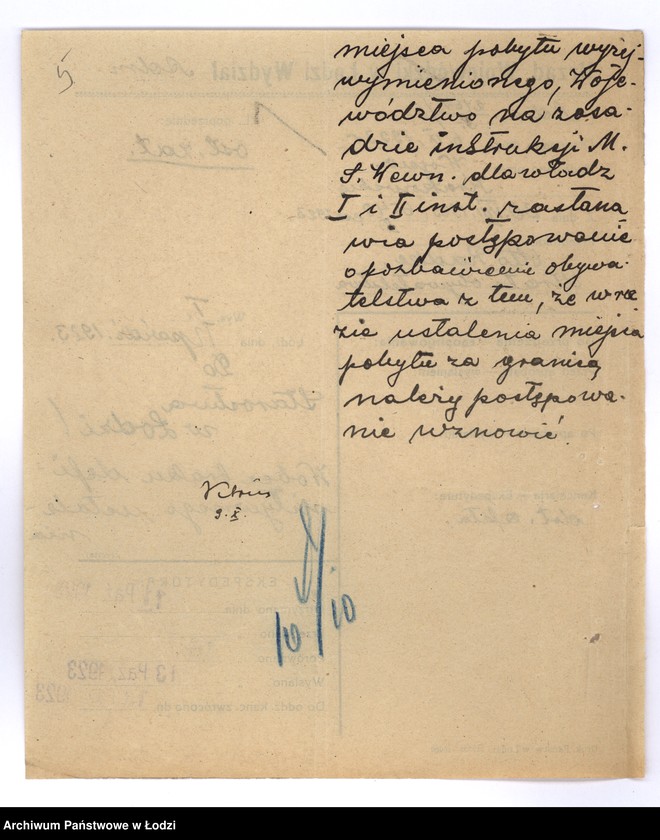 5
miejsca pobytu wyżej
wymienionego, Woje-
wództwo na zasa-
dzie instrukcji M.
S. Wewn. dla władz
I i II inst. zastana
wia postępowanie
o pozbawienie obywa-
telstwa z tem, że w ra
zie ustalenia miejsca
pobytu za granicą,
należy postępowa-
nie wznowić.
9. X.
10/10
13 PAŹ. 1923
Archiwum Państwowe w Łodzi